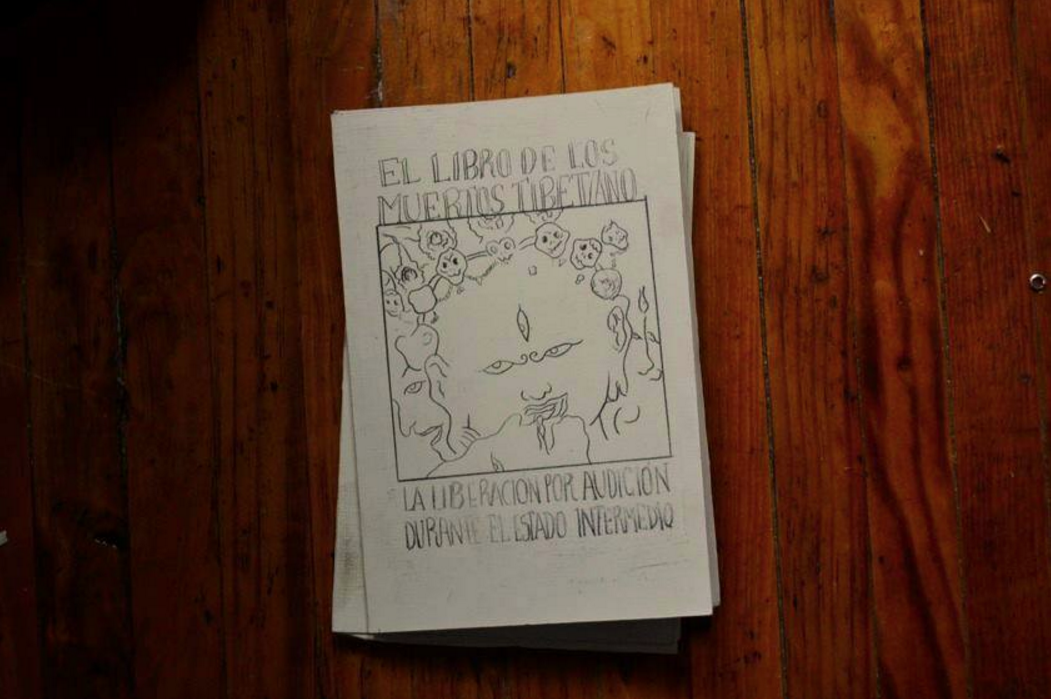 EL LIBRO DE LOS
MUERTOS TIBETANO
LA LIBERACION POR AUDICIÓN
DURANTE EL ESTADO INTERMEDIO